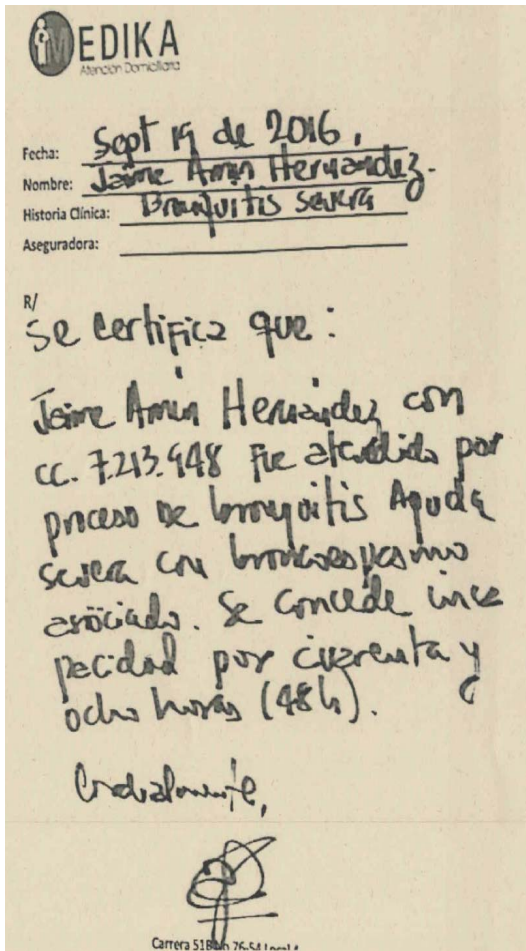 MEDIKA
Atención Domiciliaria
Fecha: Sept 19 de 2016.
Nombre: Jaime Amín Hernández.
Historia Clínica: Bronquitis severa
Aseguradora:
R/
Se certifica que:
Jaime Amín Hernández con
cc. 7.213.948 fue atendido por
proceso de bronquitis Aguda
severa con broncoespasmo
asociado. Se concede inca
pacidad por cuarenta y
ocho horas (48h).
Cordialmente,
Carrera 51B No 76-54 Local